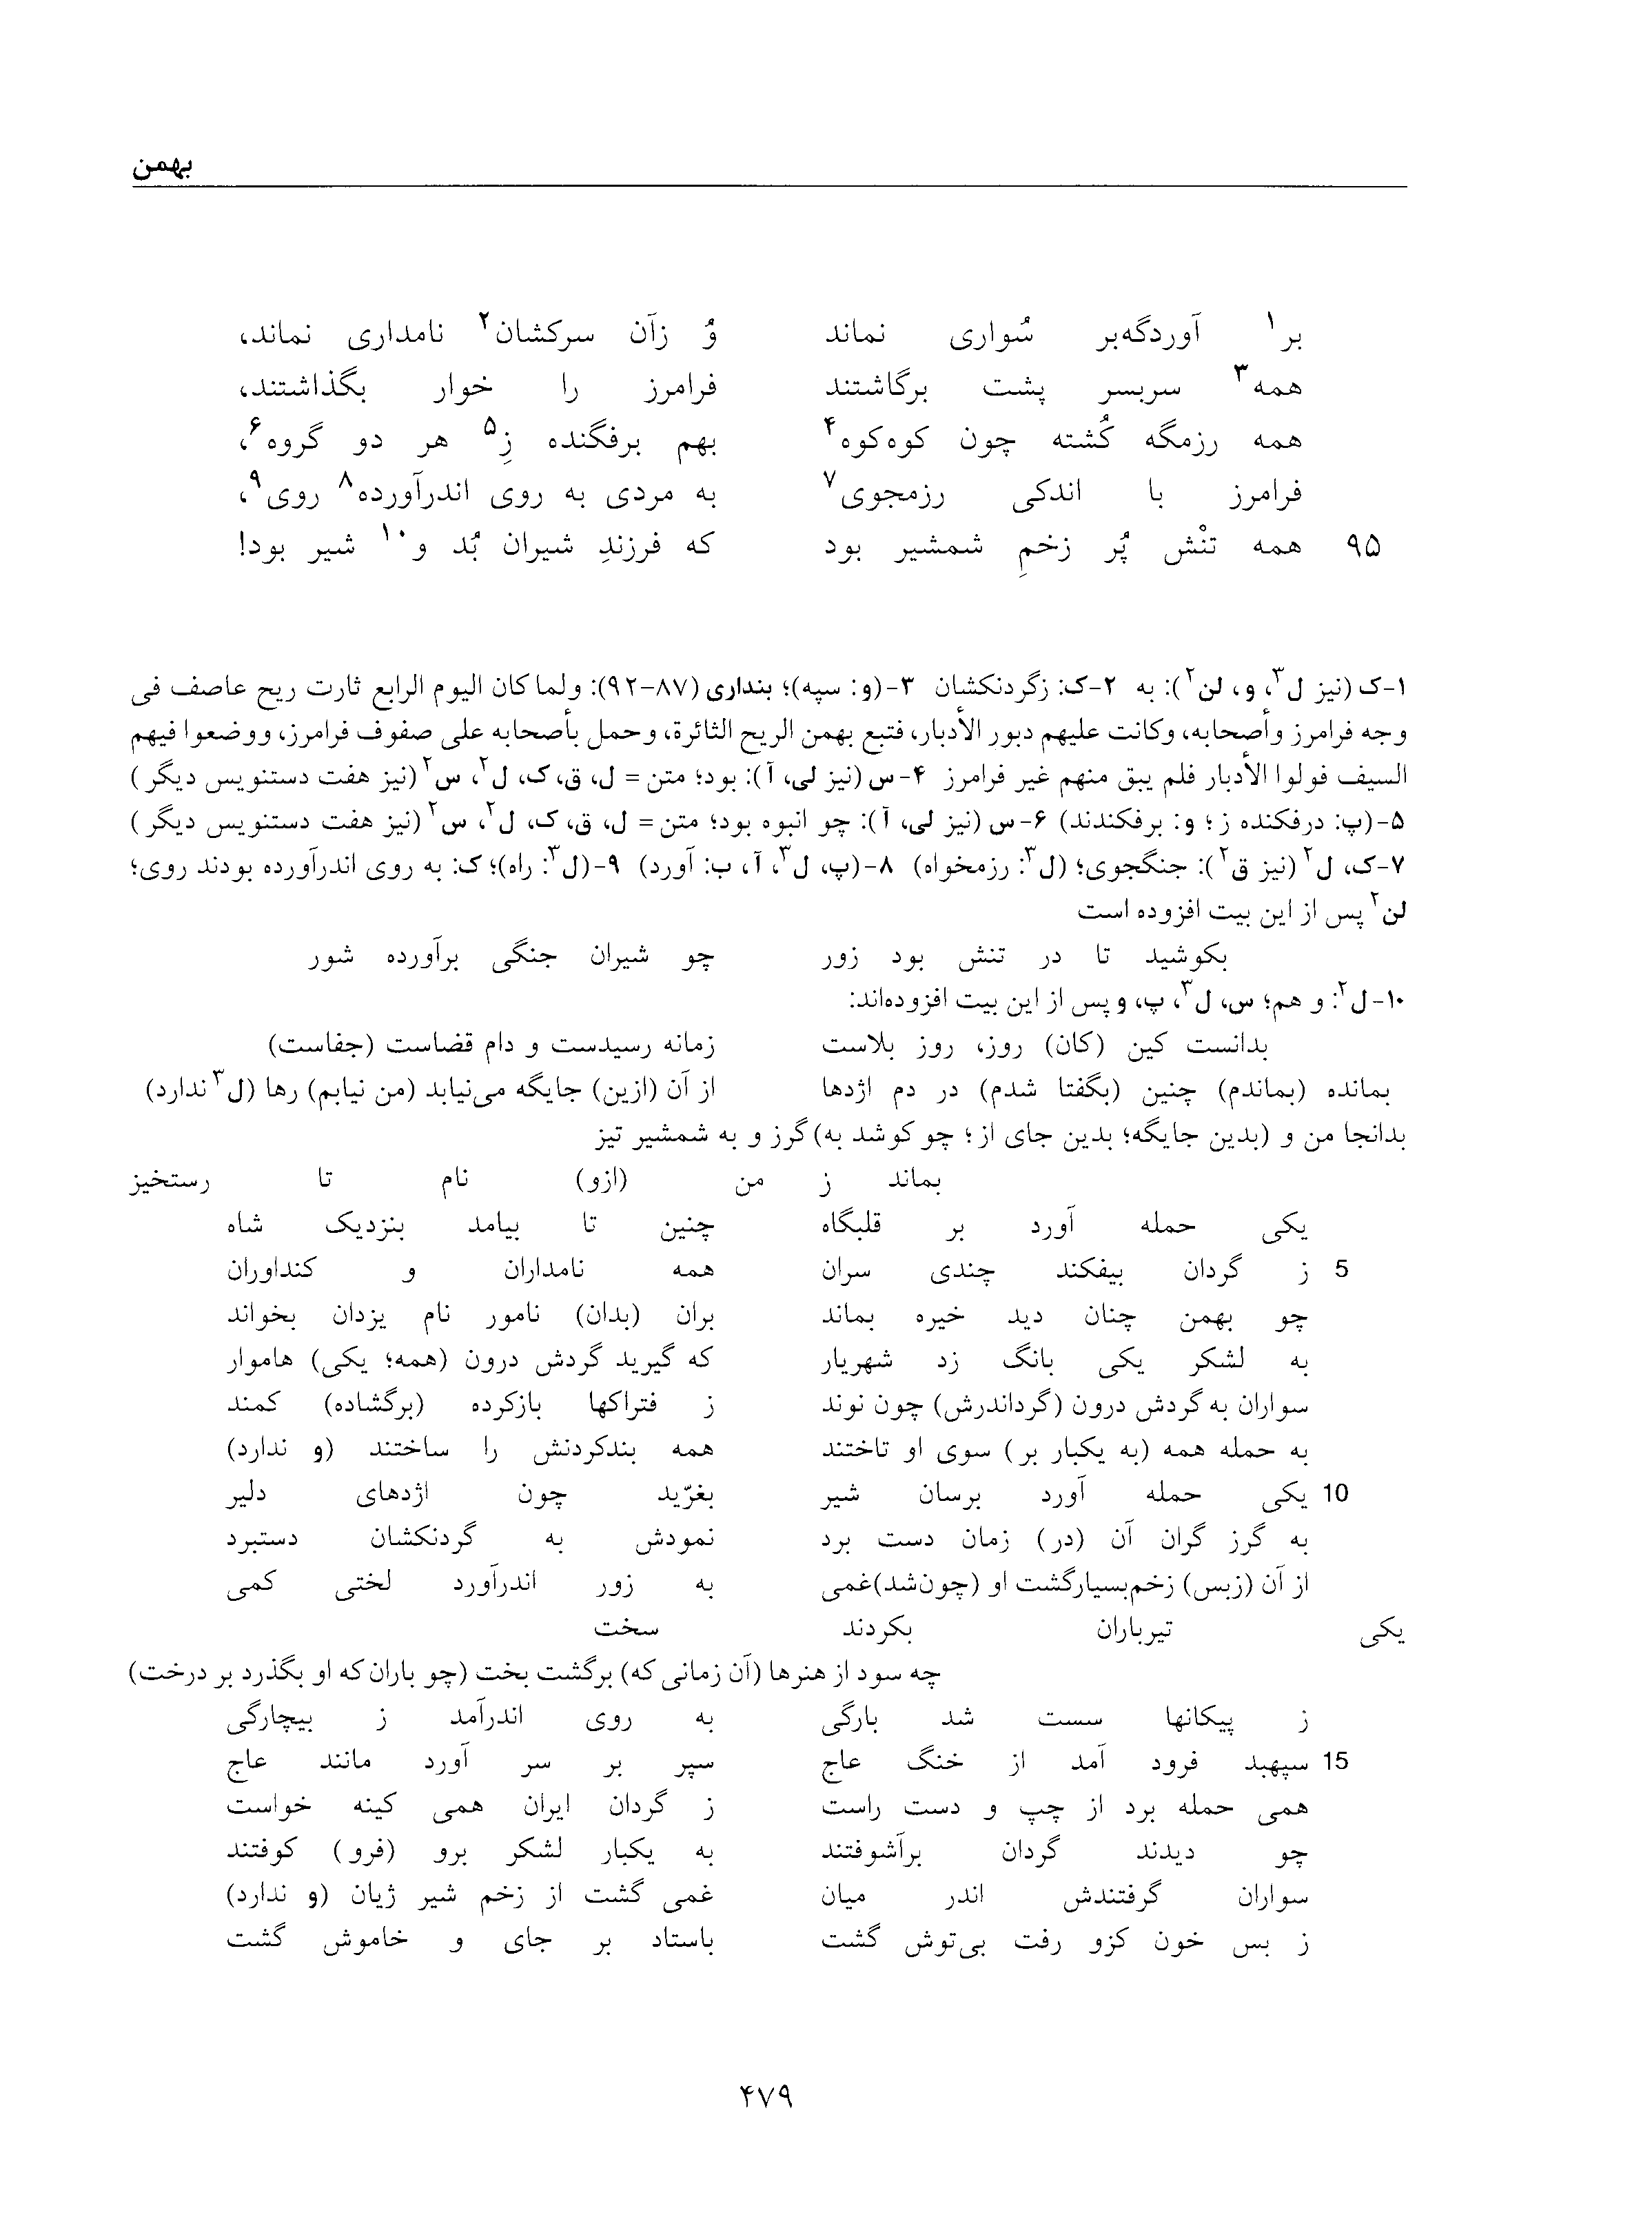 بهمن
بر۱ آوردگه‌بر سُواری نماند وُ زآن سرکشان۲ نامداری نماند،
همه۳ سربسر پشت برگاشتند فرامرز را خوار بگذاشتند،
همه رزمگه کُشته چون کوه‌کوه۴ بهم برفگنده زِ۵ هر دو گروه۶،
فرامرز با اندکی رزمجوی۷ به مردی به روی اندرآورده۸ روی۹،
۹۵ همه تنْش پُر زخمِ شمشیر بود که فرزندِ شیران بُد و۱۰ شیر بود!
۱-ک (نیز ل۳، و، لن۲): به ۲-ک: زگردنکشان ۳-(و: سپه)؛ بنداری (۸۷-۹۲): ولما کان الیوم الرابع ثارت ریح عاصف فی
وجه فرامرز وأصحابه، وکانت علیهم دبور الأدبار، فتبع بهمن الریح الثائرة، وحمل بأصحابه علی صفوف فرامرز، ووضعوا فیهم
السیف فولوا الأدبار فلم یبق منهم غیر فرامرز ۴-س (نیز لی، آ): بود؛ متن = ل، ق، ک، ل۲، س۲ (نیز هفت دستنویس دیگر)
۵-(پ: درفکنده ز؛ و: برفکندند) ۶-س (نیز لی، آ): چو انبوه بود؛ متن = ل، ق، ک، ل۲، س۲ (نیز هفت دستنویس دیگر)
۷-ک، ل۲ (نیز ق۲): جنگجوی؛ (ل۳: رزمخواه) ۸-(پ، ل۳، آ، ب: آورد) ۹-(ل۳: راه)؛ ک: به روی اندرآورده بودند روی؛
لن۲ پس از این بیت افزوده است
بکوشید تا در تنش بود زور چو شیران جنگی برآورده شور
۱۰-ل۲: و هم؛ س، ل۳، پ، و پس از این بیت افزوده‌اند:
بدانست کین (کان) روز، روز بلاست زمانه رسیدست و دام قضاست (جفاست)
بمانده (بماندم) چنین (بگفتا شدم) در دم اژدها از آن (ازین) جایگه می‌نیابد (من نیابم) رها (ل۳ ندارد)
بدانجا من و (بدین جایگه؛ بدین جای از؛ چو کوشد به) گرز و به شمشیر تیز
بماند ز من (ازو) نام تا رستخیز
یکی حمله آورد بر قلبگاه چنین تا بیامد بنزدیک شاه
5 ز گردان بیفکند چندی سران همه نامداران و کنداوران
چو بهمن چنان دید خیره بماند بران (بدان) نامور نام یزدان بخواند
به لشکر یکی بانگ زد شهریار که گیرید گردش درون (همه؛ یکی) هاموار
سواران به گردش درون (گرداندرش) چون نوند ز فتراکها بازکرده (برگشاده) کمند
به حمله همه (به یکبار بر) سوی او تاختند همه بندکردنش را ساختند (و ندارد)
10 یکی حمله آورد برسان شیر بغرّید چون اژدهای دلیر
به گرز گران آن (در) زمان دست برد نمودش به گردنکشان دستبرد
از آن (زبس) زخم‌بسیارگشت او (چون‌شد)غمی به زور اندرآورد لختی کمی
یکی تیرباران بکردند سخت
چه سود از هنرها (آن زمانی که) برگشت بخت (چو باران که او بگذرد بر درخت)
ز پیکانها سست شد بارگی به روی اندرآمد ز بیچارگی
15 سپهبد فرود آمد از خنگ عاج سپر بر سر آورد مانند عاج
همی حمله برد از چپ و دست راست ز گردان ایران همی کینه خواست
چو دیدند گردان برآشوفتند به یکبار لشکر برو (فرو) کوفتند
سواران گرفتندش اندر میان غمی گشت از زخم شیر ژیان (و ندارد)
ز بس خون کزو رفت بی‌توش گشت باستاد بر جای و خاموش گشت
۴۷۹